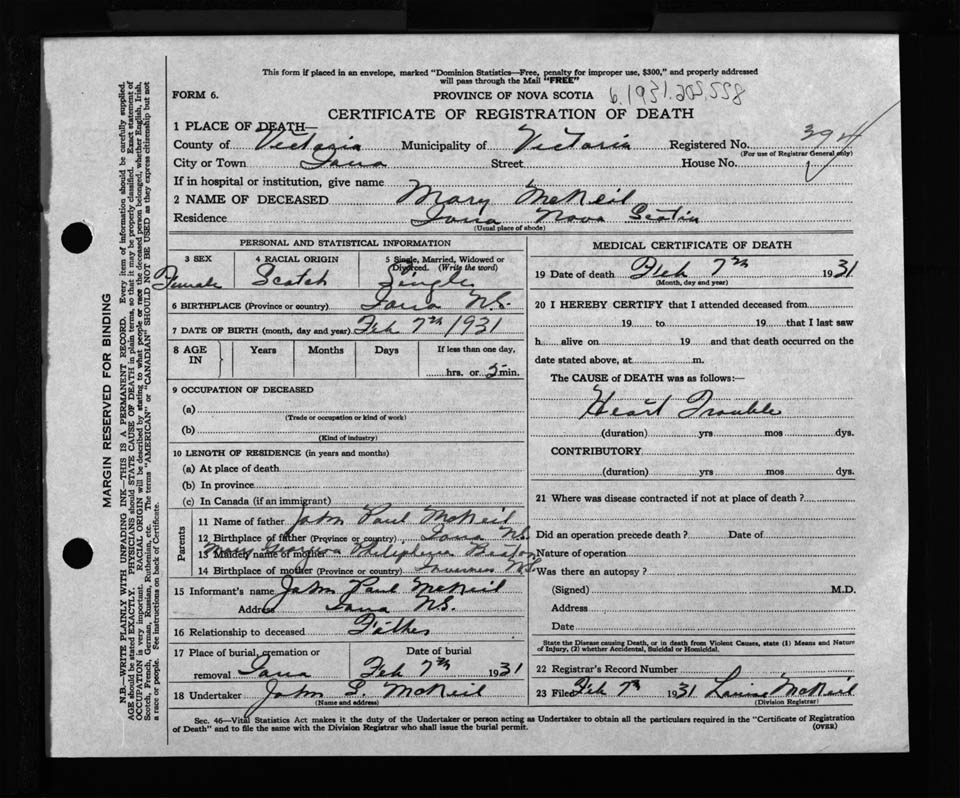 This form if placed in an envelope, marked "Dominion Statistics—Free, penalty for improper use, $300," and properly addressed
will pass through the Mail "FREE"
FORM 6.
PROVINCE OF NOVA SCOTIA
6.1931.205,558
CERTIFICATE OF REGISTRATION OF DEATH
1 PLACE OF DEATH—
County of Victoria Municipality of Victoria Registered No. 394
(For use of Registrar General only)
City or Town Iona Street House No.
If in hospital or institution, give name
2 NAME OF DECEASED Mary McNeil
Residence Iona Nova Scotia
(Usual place of abode)
PERSONAL AND STATISTICAL INFORMATION
3 SEX Female
4 RACIAL ORIGIN Scotch
5 Single, Married, Widowed or Divorced. (Write the word) Single
6 BIRTHPLACE (Province or country) Iona N.S.
7 DATE OF BIRTH (month, day and year) Feb 7th 1931
8 AGE IN Years Months Days If less than one day,
hrs. or 5 min.
9 OCCUPATION OF DECEASED
(a)
(Trade or occupation or kind of work)
(b)
(Kind of industry)
10 LENGTH OF RESIDENCE (in years and months)
(a) At place of death
(b) In province
(c) In Canada (if an immigrant)
Parents
11 Name of father John Paul McNeil
12 Birthplace of father (Province or country) Iona N.S.
13 Maiden name of mother Mary Beaton
14 Birthplace of mother (Province or country) Inverness N.S.
15 Informant's name John Paul McNeil
Address Iona N.S.
16 Relationship to deceased Father
17 Place of burial, cremation or removal Iona
Date of burial Feb 7th 1931
18 Undertaker John S. McNeil
(Name and address)
MEDICAL CERTIFICATE OF DEATH
19 Date of death Feb 7th 1931
(Month, day and year)
20 I HEREBY CERTIFY that I attended deceased from
19 to 19 that I last saw
h alive on 19 and that death occurred on the
date stated above, at m.
The CAUSE of DEATH was as follows:—
Heart Trouble
(duration) yrs mos dys.
CONTRIBUTORY
(duration) yrs mos dys.
21 Where was disease contracted if not at place of death?
Did an operation precede death? Date of
Nature of operation
Was there an autopsy?
(Signed) M.D.
Address
Date
State the Disease causing Death, or in death from Violent Causes, state (1) Means and Nature
of Injury, (2) whether Accidental, Suicidal or Homicidal.
22 Registrar's Record Number
23 Filed Feb 7th 1931 Louise McNeil
(Division Registrar)
Sec. 46—Vital Statistics Act makes it the duty of the Undertaker or person acting as Undertaker to obtain all the particulars required in the "Certificate of Registration
of Death" and to file the same with the Division Registrar who shall issue the burial permit.
(OVER)
MARGIN RESERVED FOR BINDING
N.B.—WRITE PLAINLY WITH UNFADING INK—THIS IS A PERMANENT RECORD. Every item of information should be carefully supplied.
AGE should be stated EXACTLY. PHYSICIANS should STATE CAUSE OF DEATH in plain terms, so that it may be properly classified. Exact statement of
OCCUPATION is very important. RACIAL ORIGIN will be described by stating to what people or race the deceased person belonged, whether English, Irish,
Scotch, French, German, Russian, Ruthenian, etc. The terms "AMERICAN" or "CANADIAN" SHOULD NOT BE USED as they express citizenship but not
a race or people. See instructions on back of Certificate.